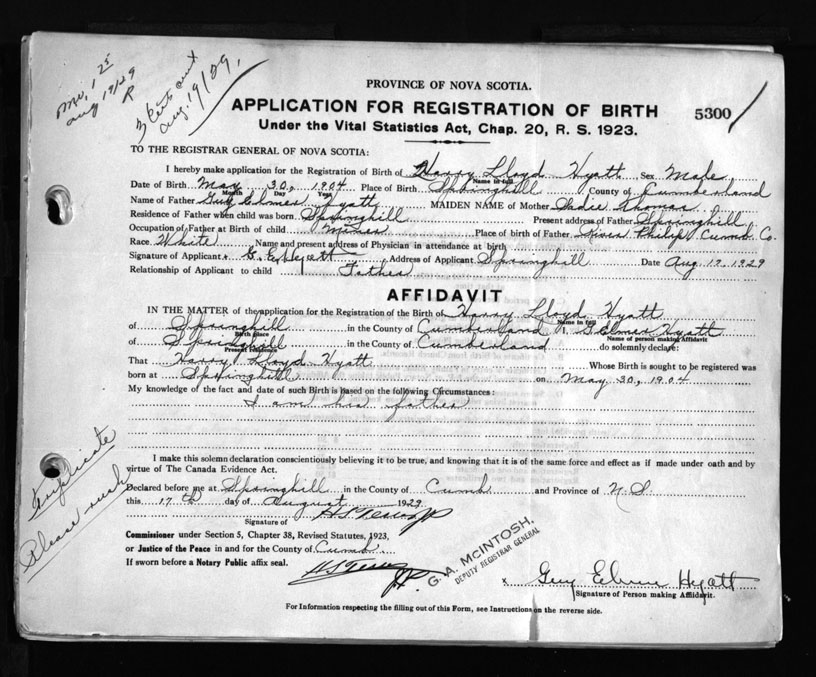 Rec. 1.25
Aug 19/29
R
Aug. 19/29,
PROVINCE OF NOVA SCOTIA.
APPLICATION FOR REGISTRATION OF BIRTH
5300
Under the Vital Statistics Act, Chap. 20, R. S. 1923.
TO THE REGISTRAR GENERAL OF NOVA SCOTIA:
I hereby make application for the Registration of Birth of Harry Lloyd Hyatt Sex Male
Name in full
Date of Birth May 30, 1904 Place of Birth Springhill County of Cumberland
Month Day Year
Name of Father Guy Elmer Hyatt MAIDEN NAME of Mother Sadie Thomas
Residence of Father when child was born Springhill Present address of Father Springhill
Occupation of Father at Birth of child Miner Place of birth of Father River Philip Cumb Co.
Race White Name and present address of Physician in attendance at birth
Signature of Applicant G. E. Hyatt Address of Applicant Springhill Date Aug 17, 1929
Relationship of Applicant to child Father
AFFIDAVIT
IN THE MATTER of the application for the Registration of the Birth of Harry Lloyd Hyatt
Name in full
of Springhill in the County of Cumberland I, G Elmer Hyatt
Birth place Name of person making Affidavit
of Springhill in the County of Cumberland do solemnly declare:
Present residence
That Harry Lloyd Hyatt Whose Birth is sought to be registered was
born at Springhill on May 30, 1904
My knowledge of the fact and date of such Birth is based on the following Circumstances:
I am his father
I make this solemn declaration conscientiously believing it to be true, and knowing that it is of the same force and effect as if made under oath and by
virtue of The Canada Evidence Act.
Duplicate
Please rush
Declared before me at Springhill in the County of Cumb and Province of N. S.
this 17th day of August 1929
Signature of JP
Commissioner under Section 5, Chapter 38, Revised Statutes, 1923,
or Justice of the Peace in and for the County of Cumb
If sworn before a Notary Public affix seal.
JP
G. A. McINTOSH,
DEPUTY REGISTRAR GENERAL
x Guy Elmer Hyatt
Signature of Person making Affidavit.
For Information respecting the filling out of this Form, see Instructions on the reverse side.